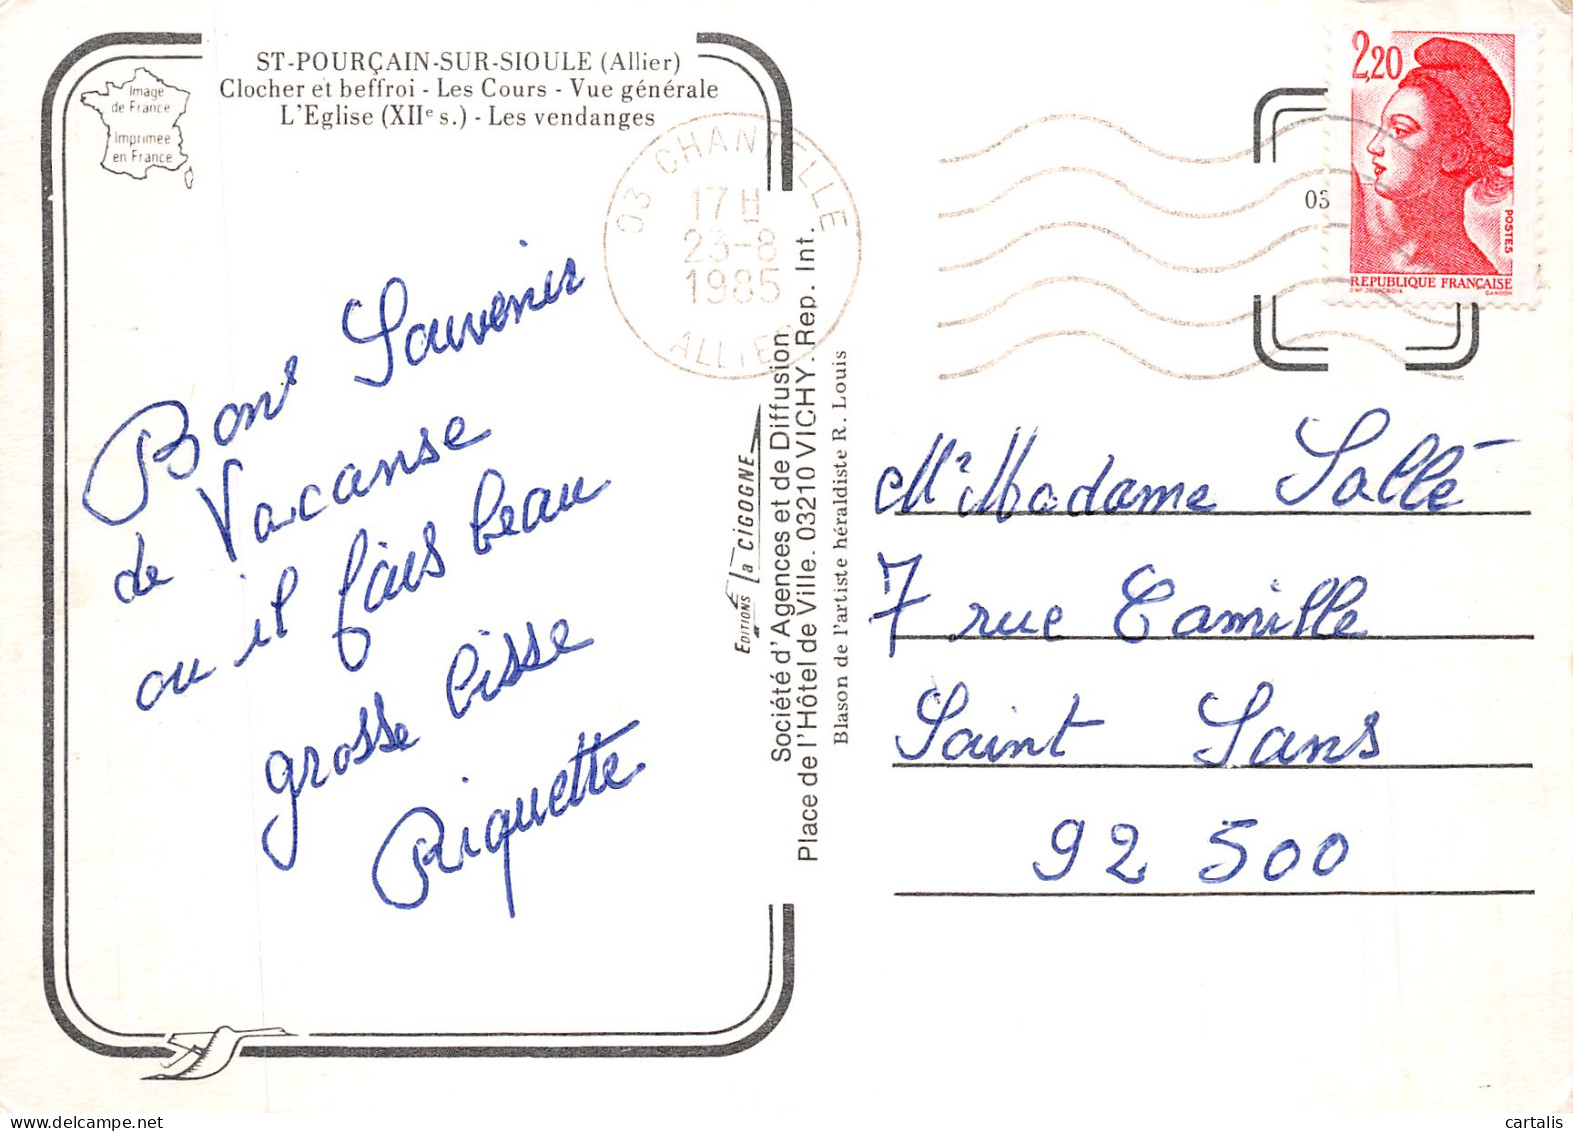 ST-POURÇAIN-SUR-SIOULE (Allier)
Clocher et beffroi - Les Cours - Vue générale
L'Eglise (XIIe s.) - Les vendanges
Image
de France
Imprimée
en France
Bons Souvenir
de Vacanse
ou il fais beau
grosse bisse
Riquette
03 CHANTELLE
17 H
23-8
1985
ALLIER
EDITIONS la CIGOGNE
Société d'Agences et de Diffusion
Place de l'Hôtel de Ville. 03210 VICHY. Rep. Int.
Blason de l'artiste héraldiste R. Louis
03
2,20
POSTES
REPUBLIQUE FRANÇAISE
D'AP. DELACROIX GANDON
Mr Madame Sallé
7 rue Camille
Saint Sans
92 500
cartalis
www.delcampe.net